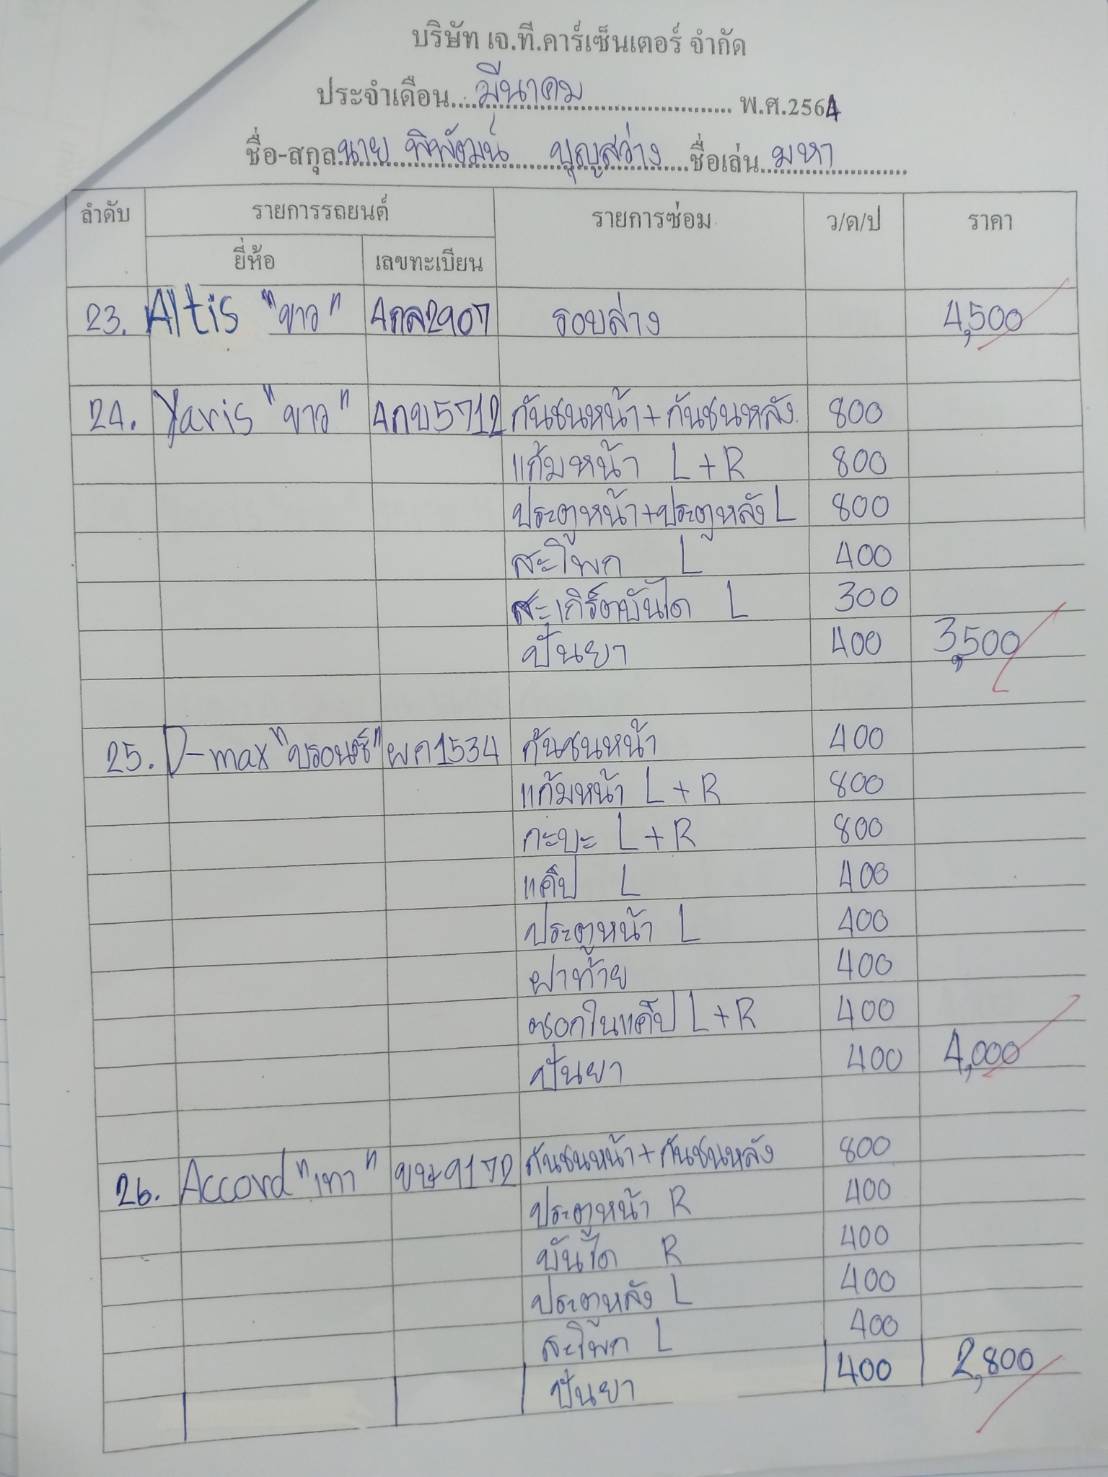 บริษัท เจ.ที.คาร์เซ็นเตอร์ จำกัด
ประจำเดือน....มีนาคม.................... พ.ศ.2564
ชื่อ-สกุล นาย พิพัฒน์ บุญสว่าง ชื่อเล่น มหา
ลำดับ รายการรถยนต์ รายการซ่อม ว/ด/ป ราคา
ยี่ห้อ เลขทะเบียน
23. Altis "ขาว" 4กล2907 รอบล่าง 4,500
24. Yaris "ขาว" 4กข5712 กันชนหน้า+กันชนหลัง 800
แก้มหน้า L+R 800
ประตูหน้า+ประตูหลัง L 800
สะโพก L 400
สะเกิร์ตบันได L 300
ปั่นยา 400 3,500
25. D-max "บรอนซ์" ผก1534 กันชนหน้า 400
แก้มหน้า L+R 800
กะบะ L+R 800
แค๊ป L 400
ประตูหน้า L 400
ฝาท้าย 400
ซอกในแค๊ป L+R 400
ปั่นยา 400 4,000
26. Accord "เทา" ขษ9172 กันชนหน้า+กันชนหลัง 800
ประตูหน้า R 400
บันได R 400
ประตูหลัง L 400
สะโพก L 400
ปั่นยา 400 2,800